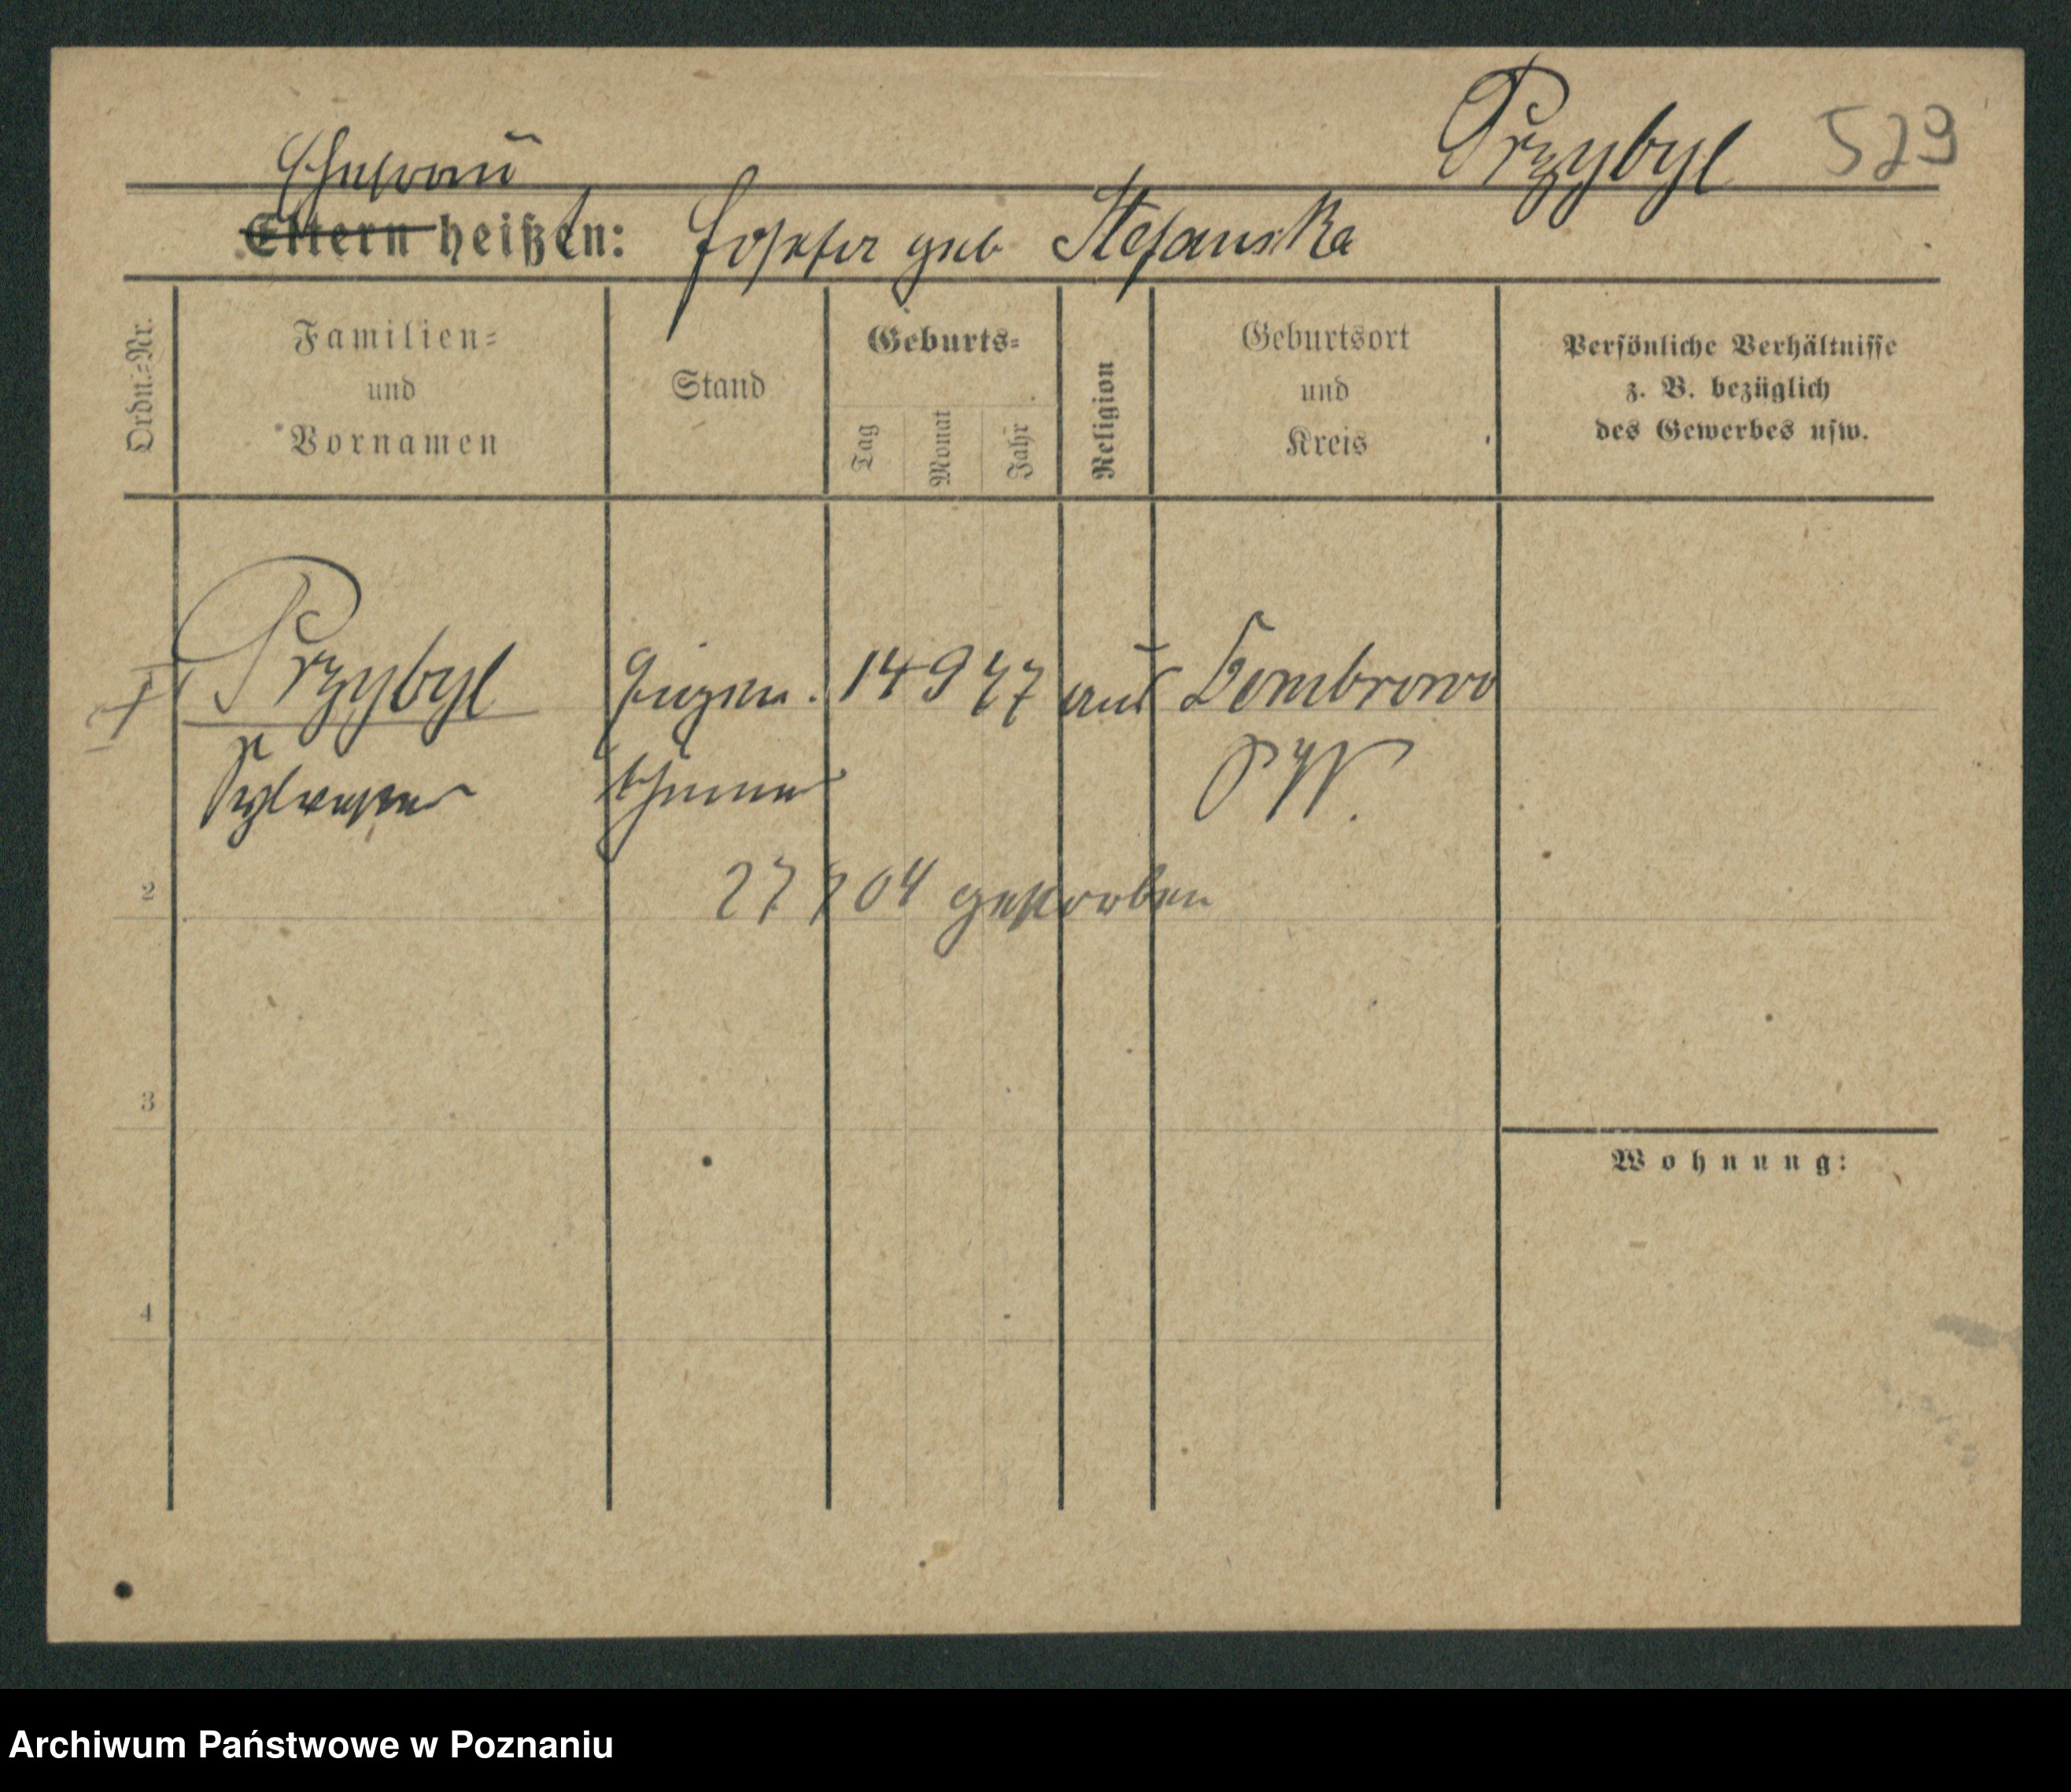 Przybyl 529
Ehefrau
Eltern heißt:
Josefa geb Stefanska
Ordn.=Nr.
Familien=
und
Vornamen
Stand
Geburts=
Tag
Monat
Jahr
Religion
Geburtsort
und
Kreis
Persönliche Verhältnisse
z. B. bezüglich
des Gewerbes usw.
Przybyl Eigen. 14 9 47 Dombrowo
Sylvester thümer P W.
27 04 gestorben
2
3
4
Wohnung:
Archiwum Państwowe w Poznaniu